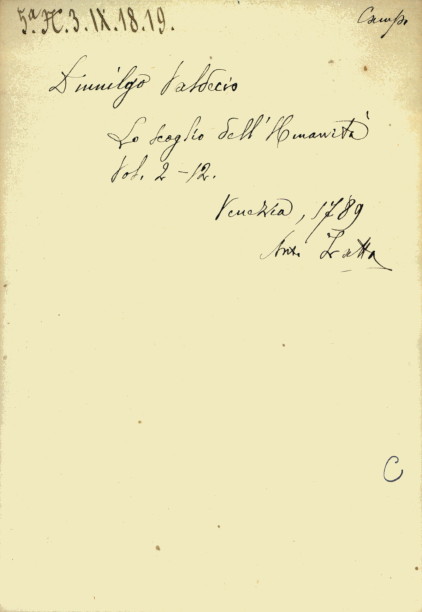 5.ª H. 3. IX. 18. 19.
Camp.
Diunilgo Valdecio
Lo scoglio dell'Umanità
Vol. 2 - 12.
Venezia, 1789
Ant. Zatta
C